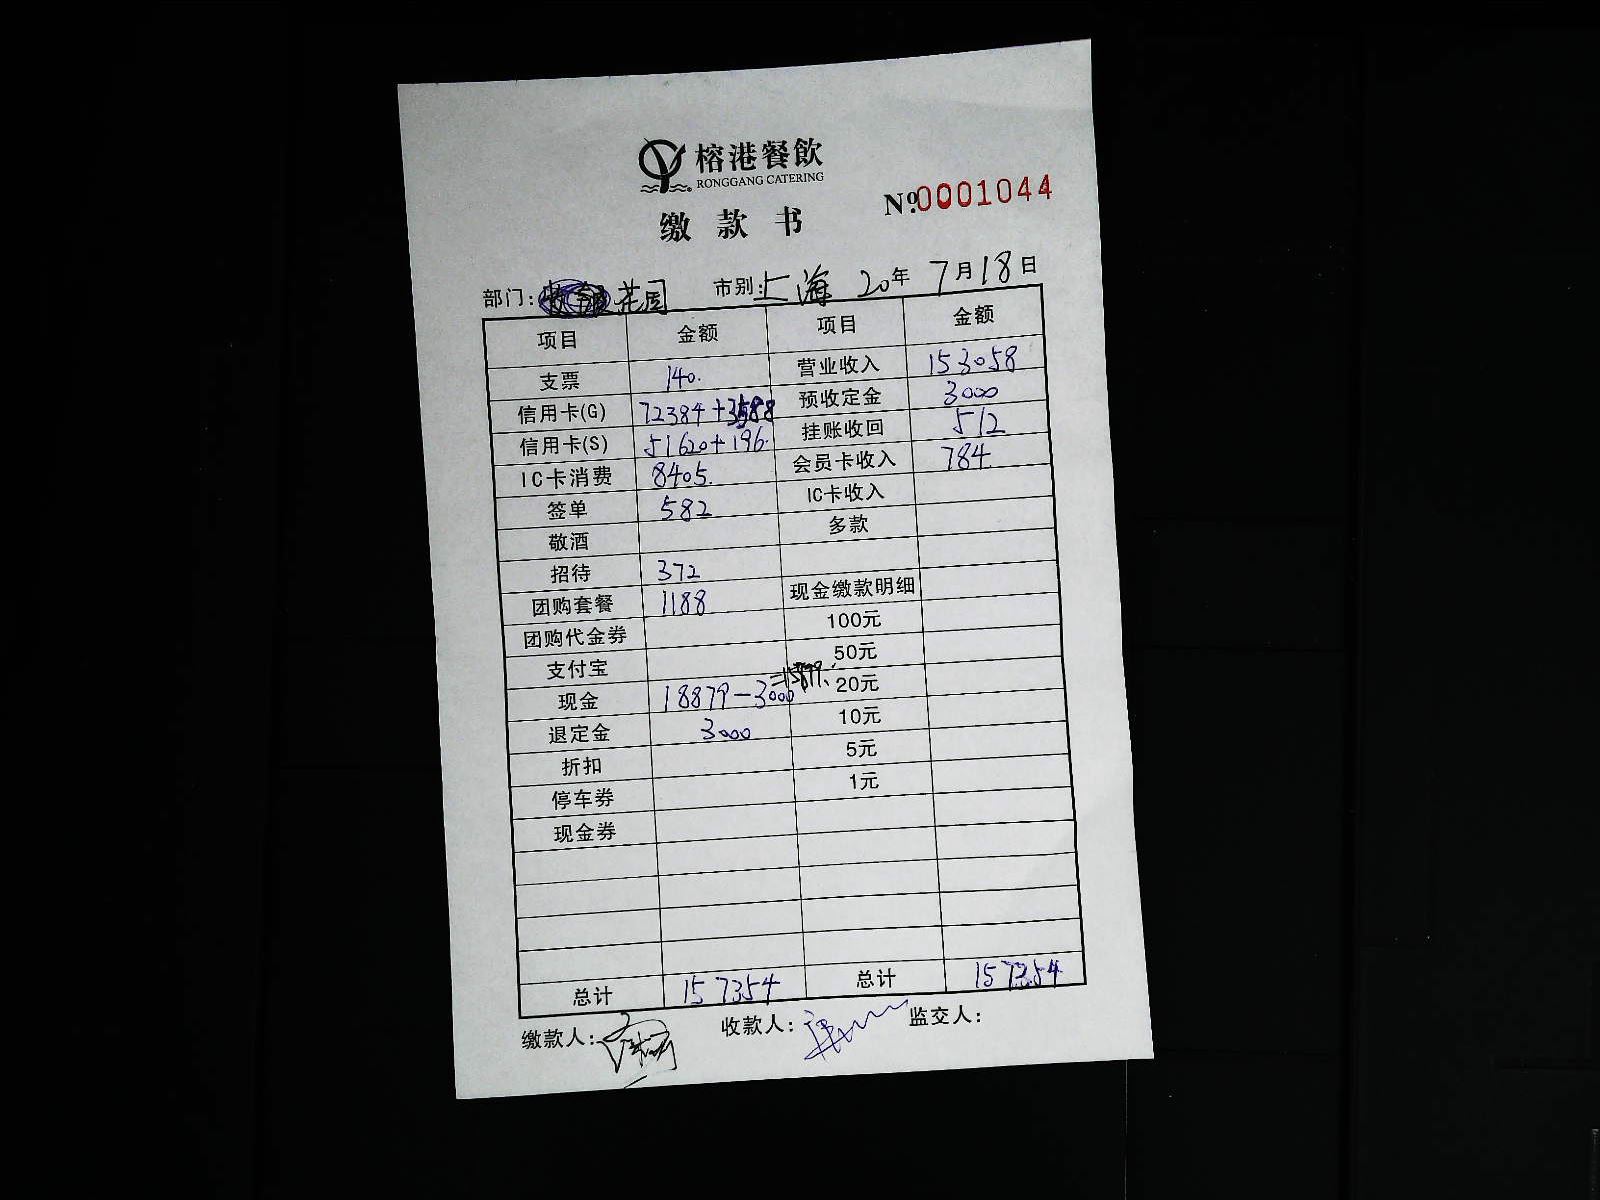 榕港餐飲
RONGGANG CATERING
缴款书
№ 0001044
部门: 花园 市别: 上海 20年 7月18日
项目 金额 项目 金额
支票 140. 营业收入 153058
信用卡(G) 72384+3588 预收定金 3000
信用卡(S) 51620+196. 挂账收回 512
IC卡消费 8405. 会员卡收入 784
签单 582 IC卡收入
敬酒 多款
招待 372
团购套餐 1188 现金缴款明细
团购代金券 100元
支付宝 50元
现金 18879-3000=15879. 20元
退定金 3000 10元
折扣 5元
停车券 1元
现金券
总计 157354 总计 157354
缴款人: 收款人: 监交人: